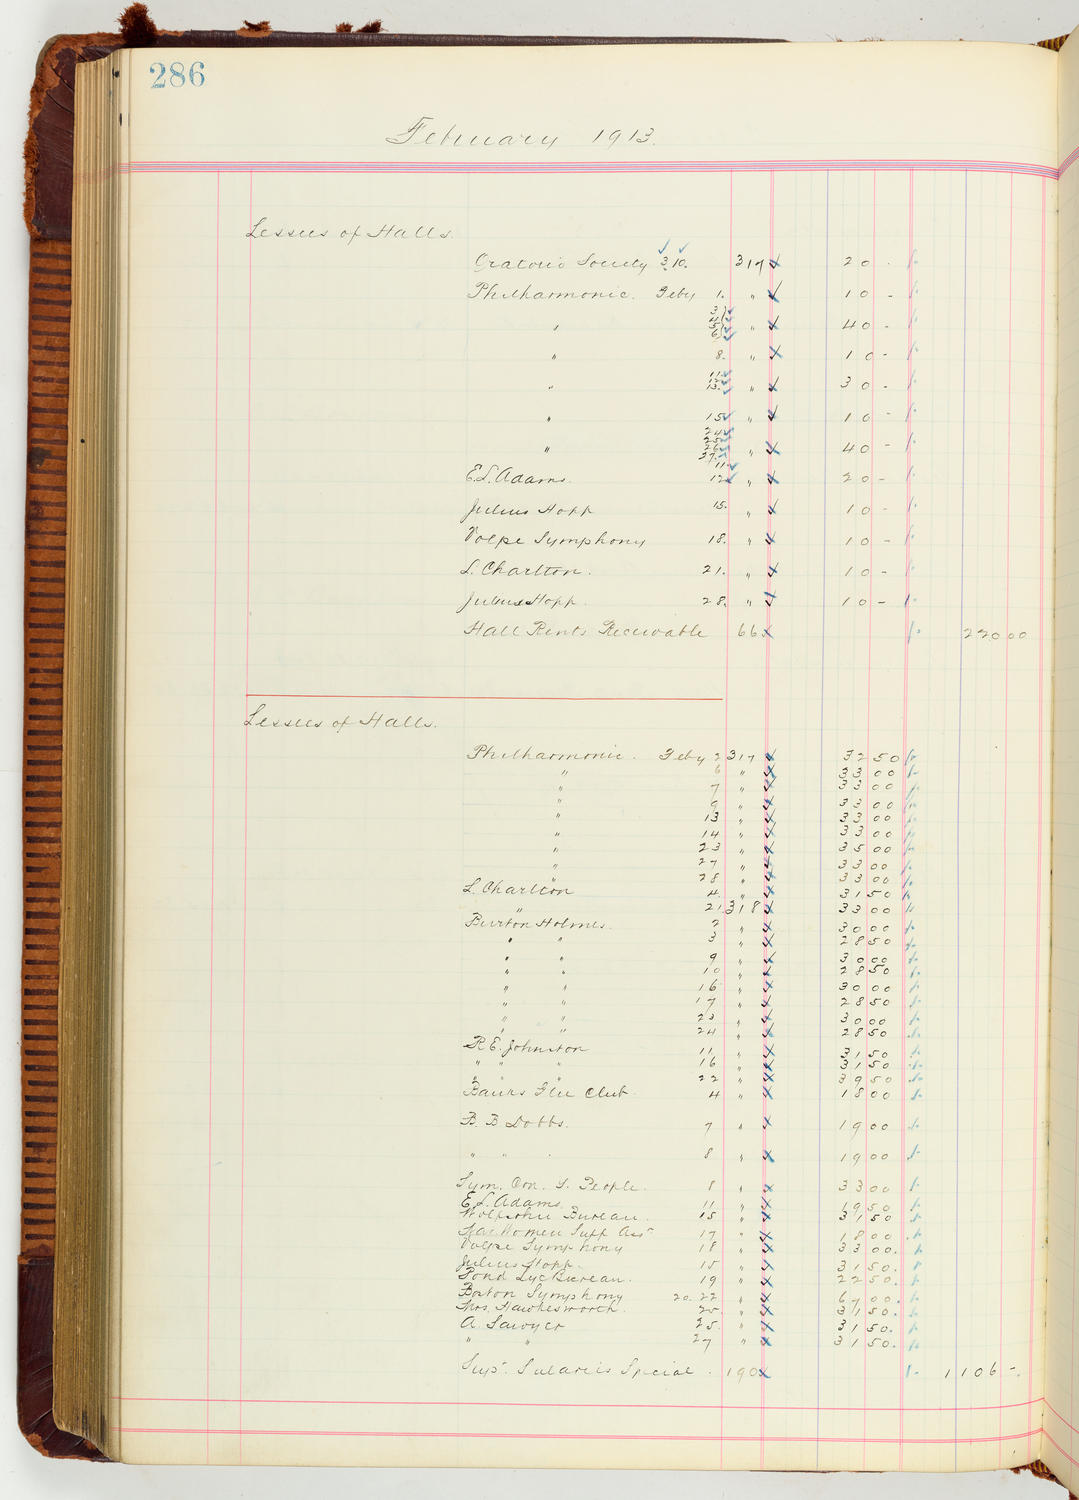 286
February 1913.
Lessees of Halls.
Oratorio Society 3. 10. 317 20 -
Philharmonic. Feby 1. " 10 -
" 3 4 5 6 " 40 -
" 8. " 10 -
" 11. 12. 13. " 30 -
" 15 " 10 -
" 24 25 26 27. " 40 -
E. L. Adams. 11. 12 " 20 -
Julius Hopp 15. " 10 -
Volpe Symphony 18. " 10 -
L. Charlton. 21. " 10 -
Julius Hopp. 28. " 10 -
Hall Rents Receivable 66 220 00
Lessees of Halls.
Philharmonic. Feby 2 317 32 50
" 6 " 33 00
" 7 " 33 00
" 9 " 33 00
" 13 " 33 00
" 14 " 33 00
" 23 " 35 00
" 27 " 33 00
" 28 " 33 00
L. Charlton 4. " 31 50
" 21. 318 33 00
Burton Holmes. 2 " 30 00
" " 3 " 28 50
" " 9 " 30 00
" " 10 " 28 50
" " 16 " 30 00
" " 17 " 28 50
" " 23 " 30 00
" " 24 " 28 50
R. E. Johnston 11 " 31 50
" " " 16 " 31 50
" " " 22 " 39 50
Glee Club 4 " 18 00
B. B Dobbs. 7 " 19 00
" " 8 " 19 00
Sym. Con. f. People. 8 " 33 00
E. L. Adams. 11 " 19 50
Wolfsohn Bureau. 15 " 31 50
Women Suff Assn 17 " 18 00
Volpe Symphony 18 " 33 00.
Julius Hopp. 15 " 31 50.
Pond Lyc Bureau. 19 " 22 50.
Boston Symphony 20. 22 " 67 00.
Mrs. Hawkesworth. 25. " 31 50.
A. Sawyer 25. " 31 50.
" " 27 " 31 50.
Supt. Salaries Special. 190 1106 -.